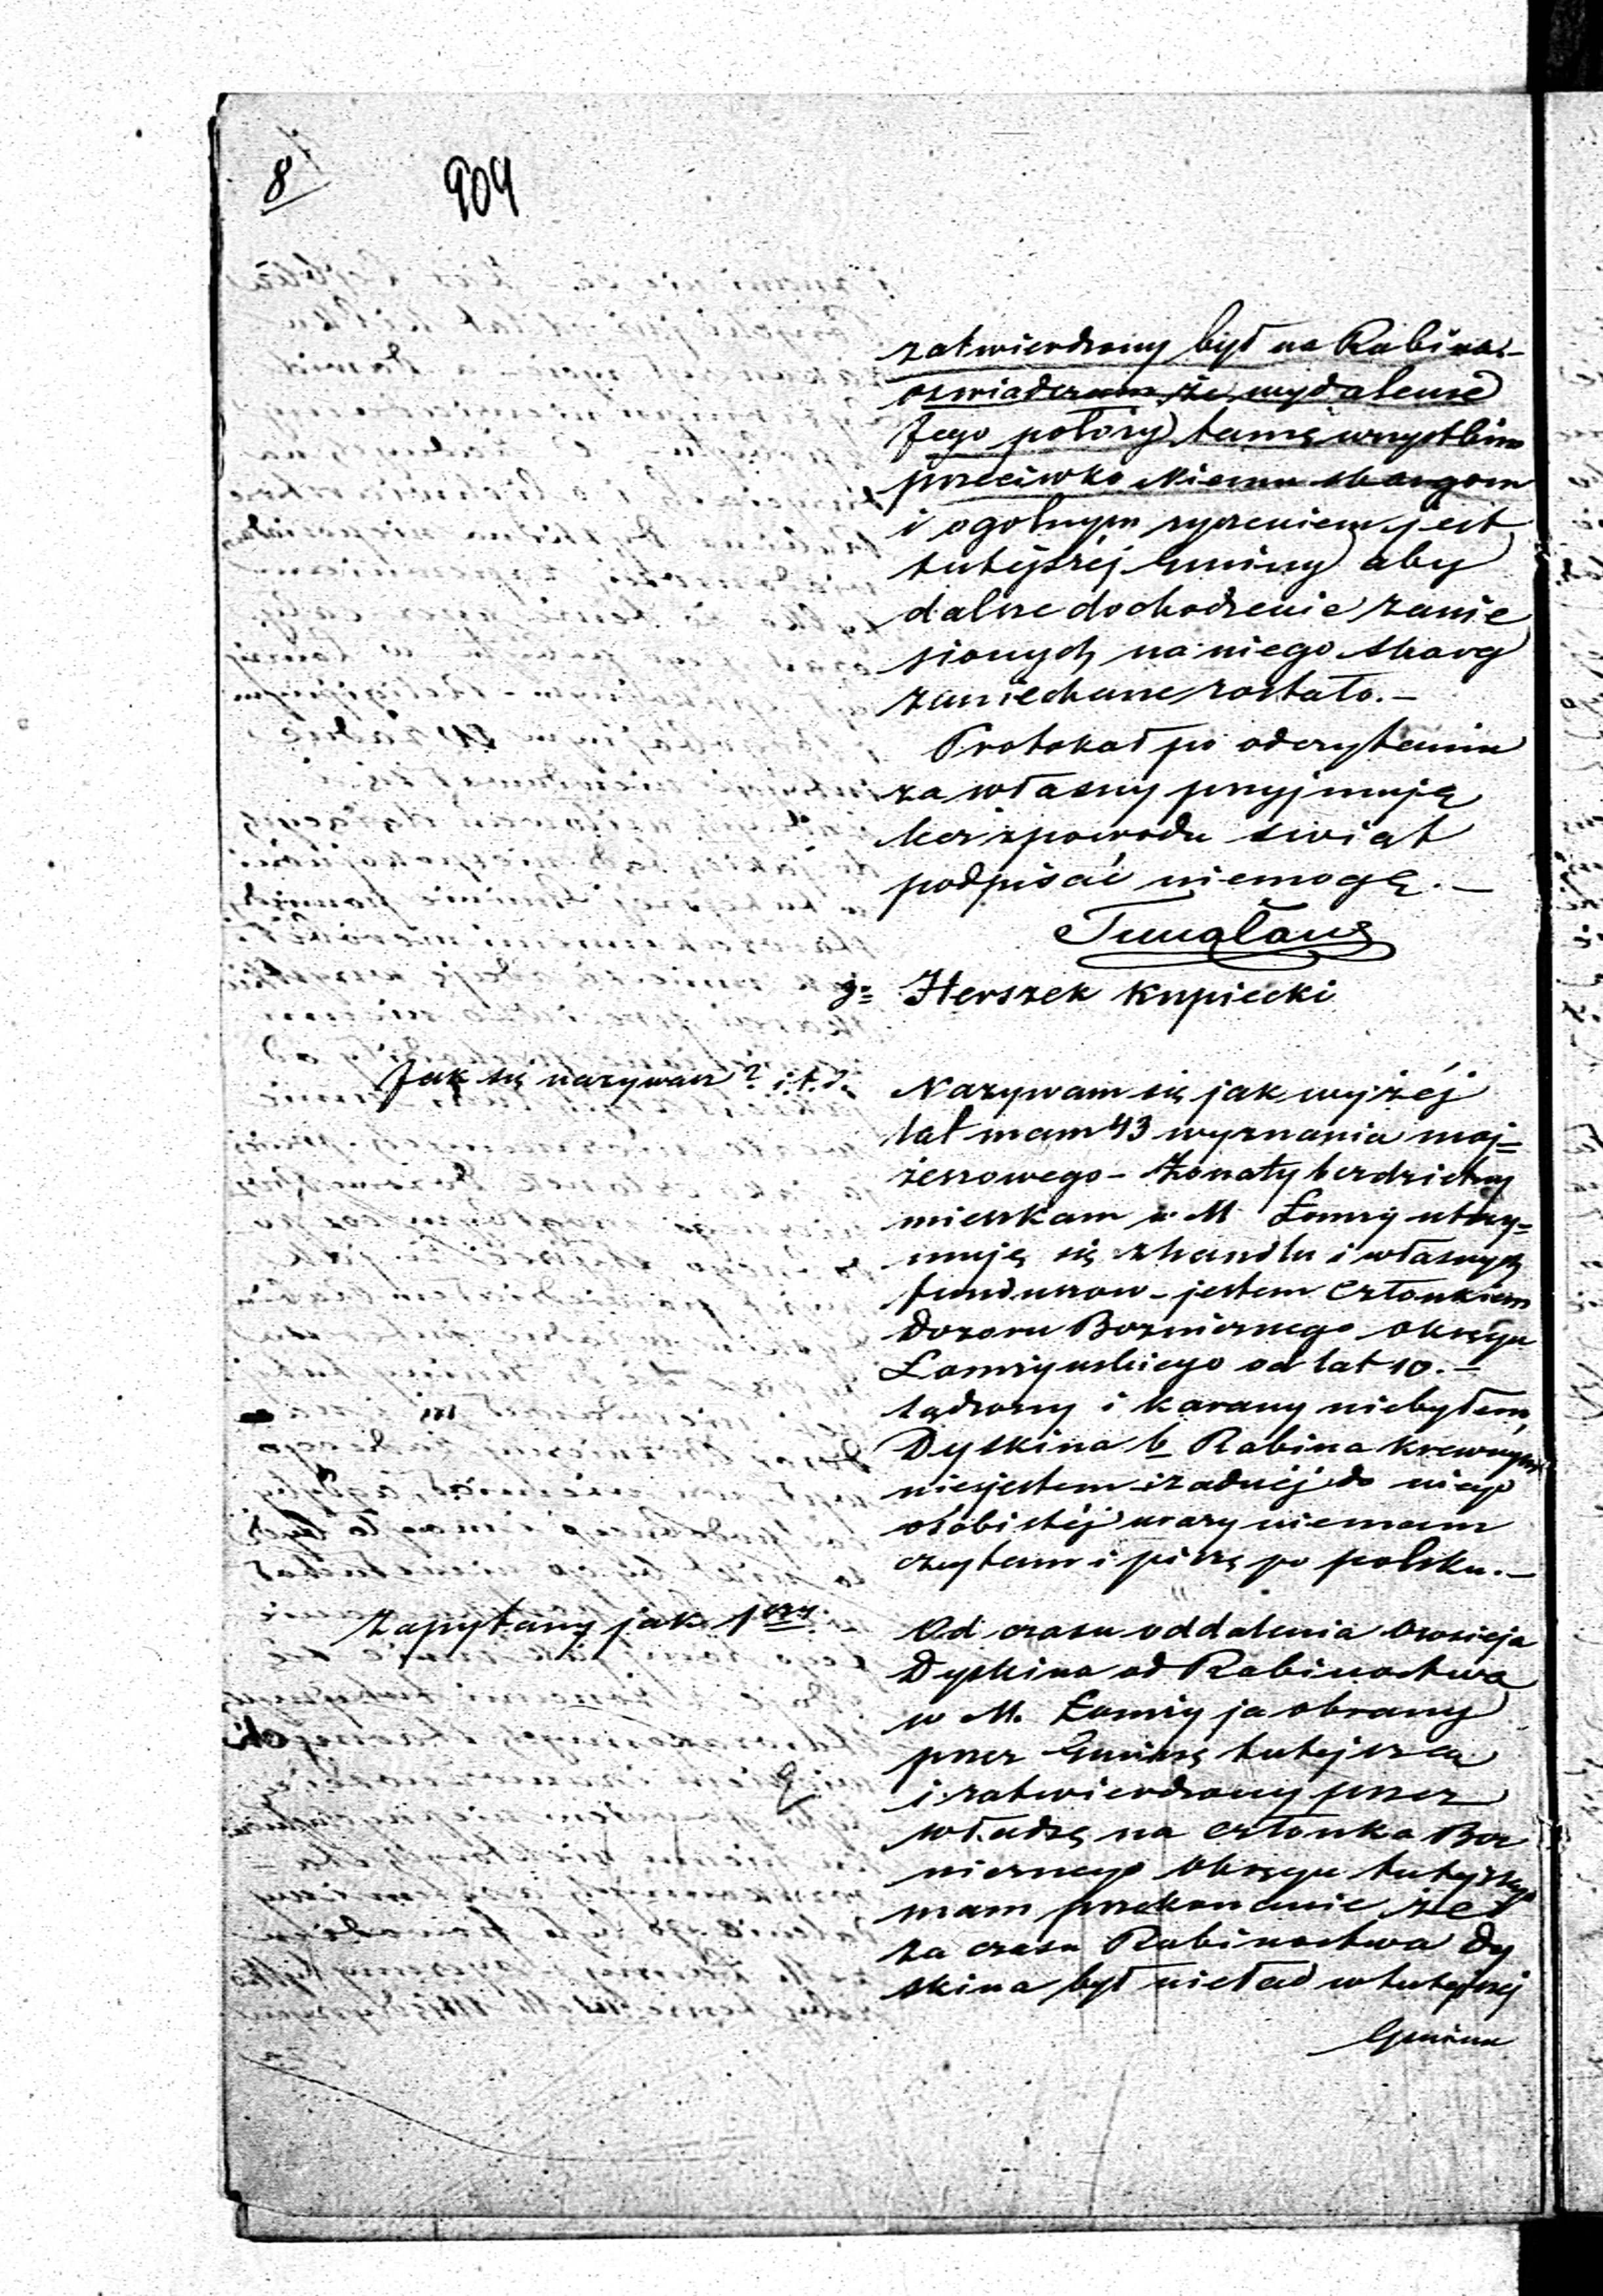 8
904
zatwierdzony był na Rabina.-
oświadczam że wydalenie
Jego położy tamę wszystkim
przeciwko Niemu skargom
i ogolnym życzeniem jest
tutéjszéj Gminy aby
dalsze dochodzenie zanie
sionych na niego skarg
zaniechane zostało.-
Protokoł po odczytaniu
za własny przyjmuję
lecz z powodu świąt
podpisać niemogę.-
Herszek Kupiecki
Jak się nazywasz? i.t.d.
Nazywam się jak wyżéj
lat mam 43 wyznania moj=
żeszowego - Żonaty bezdzietny
mieszkam w M. Łomży utrzy=
muję się z handlu i własnych
funduszow - jestem Członkiem
Dozoru Bozniczego Okręgu
Łomżyńskiego od lat 10.-
sądzony i karany niebyłem,
Dyskina b Rabina krewnym
niejestem i zadnéj do niego
osobistéj urazy niemam
czytam i piszę po polsku.-
Zapytany jak 1szy.
Od czasu oddalenia Owsieja
Dyskina od Rabinostwa
w M. Łomży ja obrany
przez Gminę tutejszą
i zatwierdzony przez
władzę na członka Boz
niczego Okręgu tutejszego
mam przekonanie że
za czasu Rabinostwa Dy
skina był nieład w tutejszej
Gminie